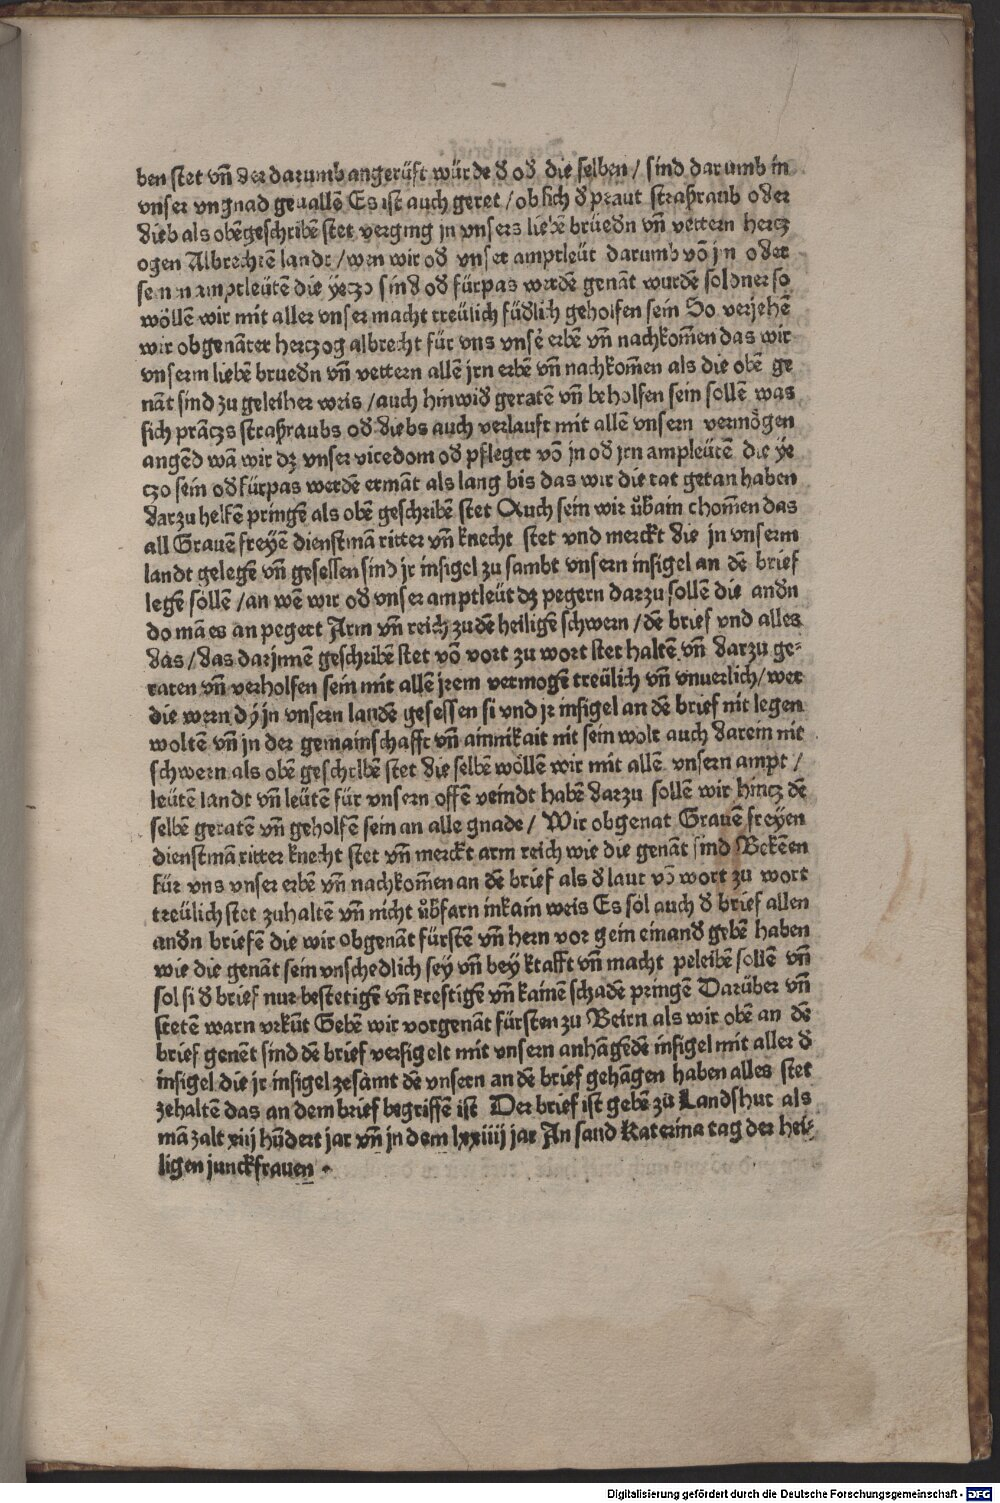 ben stet vn̄ der darumb angerüft würde đ ođ die selben / sind darumb in
vnser vngnad geuallē Es ist auch geret / ob sich đ praut straßraub oder
dieb als obēgeschribē stet verging jn vnsers liebē brüedn vn̄ vettern hertz
ogen Albrechtē landt / wen wir ođ vnser amptleüt darumb vō jn oder
seinen amptleütē die yeczo sind ođ fürpas werdē genāt wurdē soldner so
wöllē wir mit aller vnser macht treülich füdlich geholfen sein So verjehē
wir obgenāter herczog albrecht für vns vnsẻ erbē vn̄ nachkom̄en das wir
vnserm liebē bruedn vn̄ vettern allē jrn erbē vn̄ nachkom̄en als die obē ge
nāt sind zu geleiher weis / auch hinwiđ geratē vn̄ beholfen sein sollē was
sich prāczs straßraubs ođ diebs auch verlauft mit allē vnsern vermögen
angēd wā wir dz vnser vicedom ođ pfleger vō jn ođ jrn ampleütē die ye
czo sein ođ fürpas werdē ermāt als lang bis das wir die tat getan haben
darzu helfē pringē als obē geschribē stet Auch sein wir übain chom̄en das
all Grauē freyē dienstmā ritter vn̄ knecht stet vnd merckt die jn vnserm
landt gelegē vn̄ gesessen sind jr insigel zu sambt vnsern insigel an dē brief
legē söllē / an wē wir ođ vnser amptleüt dz pegern darzu sollē die andn
do mā es an pegert Arm vn̄ reich zu dē heiligē schwern / dē brief vnd alles
das / das darjnnē geschribē stet vō vort zu wort stet haltē vn̄ darzu ge⸗
raten vn̄ verholfen sein mit allē jrem vermogē treülich vn̄ vnuerlich / wer
die wern dy jn vnsern landē gesessen si vnd jr insigel an dē brief nit legen
woltē vn̄ jn der gemainschafft vn̄ ainnikait nit sein wolt auch darein nit
schwern als obē geschribē stet die selbē wöllē wir mit allē vnsern ampt /
leütē landt vn̄ leütē für vnsern offē veindt habē darzu sollē wir hincz dē
selbē geratē vn̄ geholfē sein an alle gnade / Wir obgenat Grauē freyen
dienstmā ritter knecht stet vn̄ merckt arm reich wie die genāt sind Bekēen
für vns vnser erbē vn̄ nachkom̄en an dē brief als đ laut vō wort zu wort
treülich stet zuhaltē vn̄ nicht üb̄farn inkain weis Es sol auch đ brief allen
andn briefē die wir obgenāt fürstē vn̄ hern vor gein einanđ gebē haben
wie die genāt sein vnschedlich sey vn̄ bey krafft vn̄ macht peleibē sollē vn̄
sol si đ brief nur bestetigē vn̄ kreftigē vn̄ kainē schadē pringē Darüber vn̄
stetē warn vrkūt Gebē wir vorgenāt fürsten zu Beirn als wir obē an dē
brief genēt sind dē brief versigelt mit vnsern anhāgēdē insigel mit aller đ
insigel die jr insigel zesamt dē vnsern an dē brief gehāgen haben alles stet
zehaltē das an dem brief begriffē ist Der brief ist gebē zu Landshut als
mā zalt xiij hūdert jar vn̄ jn dem lxxiiij jar An sand Katerina tag der hei⸗
ligen junckfrauen .
Digitalisierung gefördert durch die Deutsche Forschungsgemeinschaft - DFG